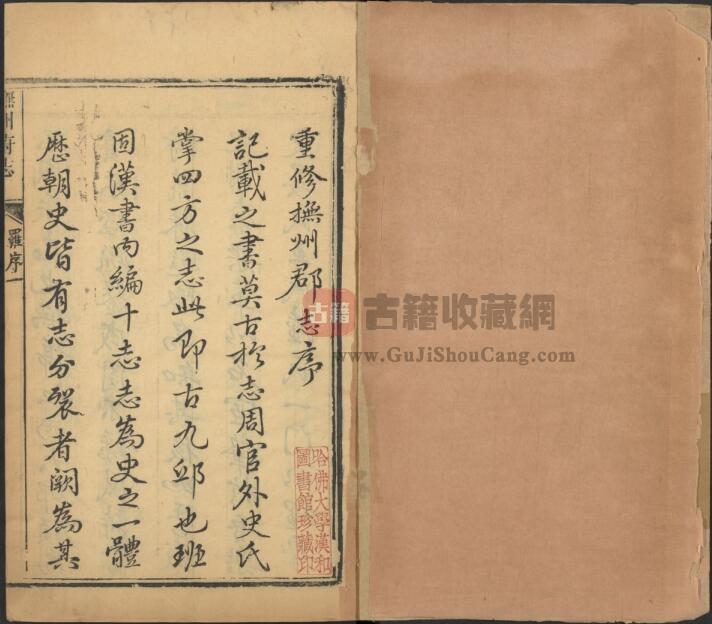 重修撫州郡志序
記載之書莫古於志周官外史氏
掌四方之志此即古九邱也班
固漢書内編十志志為史之一體
歷朝史皆有志分裂者闕為其
撫州府志
羅序一
哈佛大學漢和
圖書館珍藏印
古籍
古籍收藏網
www.GuJiShouCang.com